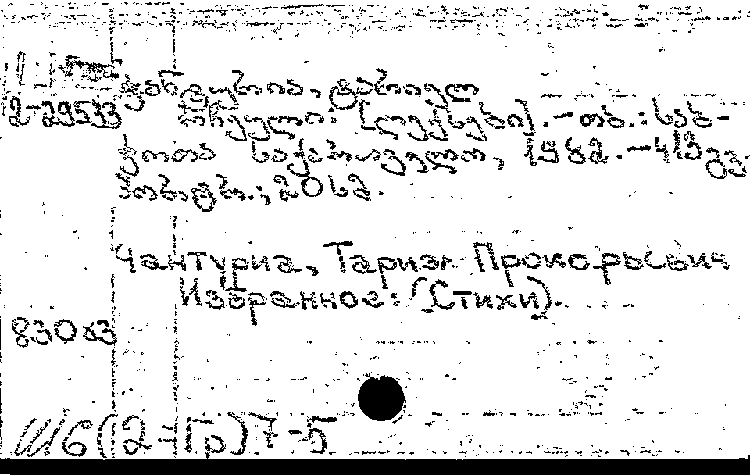 ჭანტურია, ტარიელ
2-29533 რჩეული: [ლექსები]. — თბ.: საბ-
ჭოთა საქართველო, 1982. — 413 გვ.
პორტრ.; 20 სმ.
Чантурия, Тариэл Прокофьевич
Избранное: (Стихи).
83063
Ш6(2=Гр)7-5